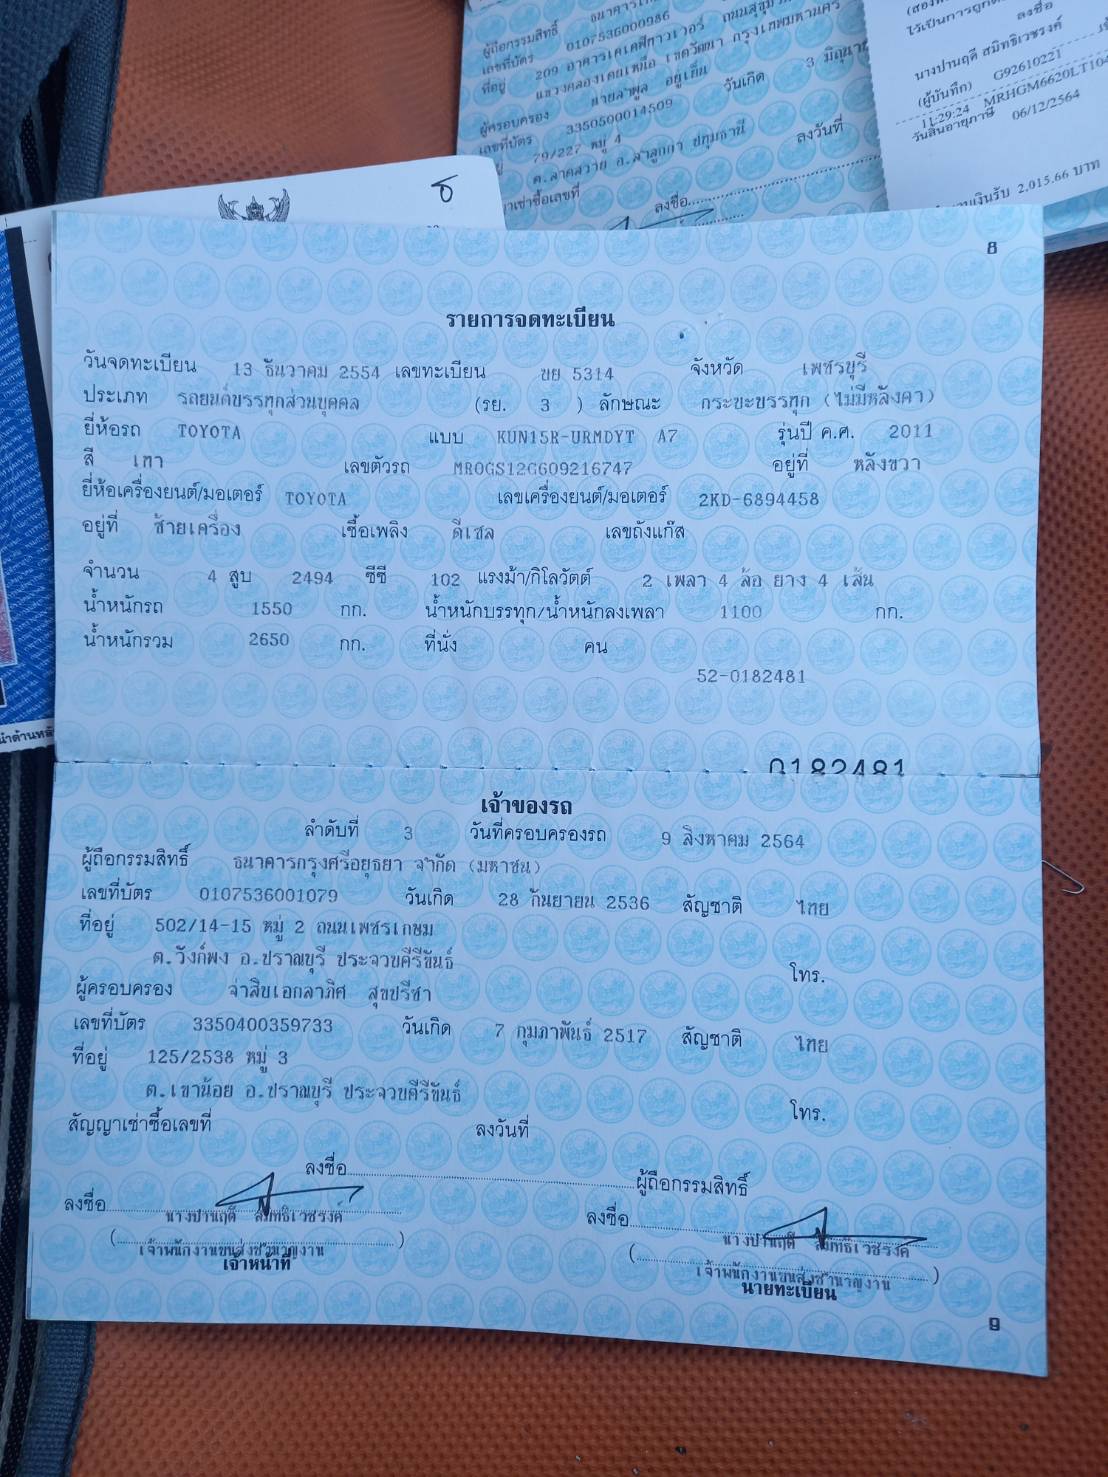 ผู้ถือกรรมสิทธิ์
เลขที่บัตร 0107536000986
ที่อยู่ 209 อาคารเคเคพีทาวเวอร์ ถนนสุขุมวิท
แขวงคลองเตยเหนือ เขตวัฒนา กรุงเทพมหานคร
ผู้ครอบครอง นายลำพูล อยู่เย็น
เลขที่บัตร 3350500014509 วันเกิด 3
79/227 หมู่ 4
ต.ลาดสวาย อ.ลำลูกกา ปทุมธานี
ลงวันที่
ลงชื่อ
ลงชื่อ
นางปานฤดี สมิทธิเวชรงค์
(ผู้บันทึก) G92610221
11:29:24 MRHGM6620LT104
วันสิ้นอายุภาษี 06/12/2564
2,015.66 บาท
8
รายการจดทะเบียน
วันจดทะเบียน 13 ธันวาคม 2554 เลขทะเบียน บย 5314 จังหวัด เพชรบุรี
ประเภท รถยนต์บรรทุกส่วนบุคคล (รย. 3 ) ลักษณะ กระบะบรรทุก (ไม่มีหลังคา)
ยี่ห้อรถ TOYOTA แบบ KUN15R-URMDYT A7 รุ่นปี ค.ศ. 2011
สี เทา เลขตัวรถ MR0GS12G609216747 อยู่ที่ หลังขวา
ยี่ห้อเครื่องยนต์/มอเตอร์ TOYOTA เลขเครื่องยนต์/มอเตอร์ 2KD-6894458
อยู่ที่ ซ้ายเครื่อง เชื้อเพลิง ดีเซล เลขถังแก๊ส
จำนวน 4 สูบ 2494 ซีซี 102 แรงม้า/กิโลวัตต์ 2 เพลา 4 ล้อ ยาง 4 เส้น
น้ำหนักรถ 1550 กก. น้ำหนักบรรทุก/น้ำหนักลงเพลา 1100 กก.
น้ำหนักรวม 2650 กก. ที่นั่ง คน
52-0182481
0182481
เจ้าของรถ
ลำดับที่ 3 วันที่ครอบครองรถ 9 สิงหาคม 2564
ผู้ถือกรรมสิทธิ์ ธนาคารกรุงศรีอยุธยา จำกัด (มหาชน)
เลขที่บัตร 0107536001079 วันเกิด 28 กันยายน 2536 สัญชาติ ไทย
ที่อยู่ 502/14-15 หมู่ 2 ถนนเพชรเกษม
ต.วังก์พง อ.ปราณบุรี ประจวบคีรีขันธ์
โทร.
ผู้ครอบครอง จ่าสิบเอกลาภิศ สุขปรีชา
เลขที่บัตร 3350400359733 วันเกิด 7 กุมภาพันธ์ 2517 สัญชาติ ไทย
ที่อยู่ 125/2538 หมู่ 3
ต.เขาน้อย อ.ปราณบุรี ประจวบคีรีขันธ์
โทร.
สัญญาเช่าซื้อเลขที่ ลงวันที่
ลงชื่อ ผู้ถือกรรมสิทธิ์
ลงชื่อ ลงชื่อ
นางปานฤดี สมิทธิเวชรงค์ นางปานฤดี สมิทธิเวชรงค์
( เจ้าพนักงานขนส่งชำนาญงาน ) ( เจ้าพนักงานขนส่งชำนาญงาน )
เจ้าหน้าที่ นายทะเบียน
9